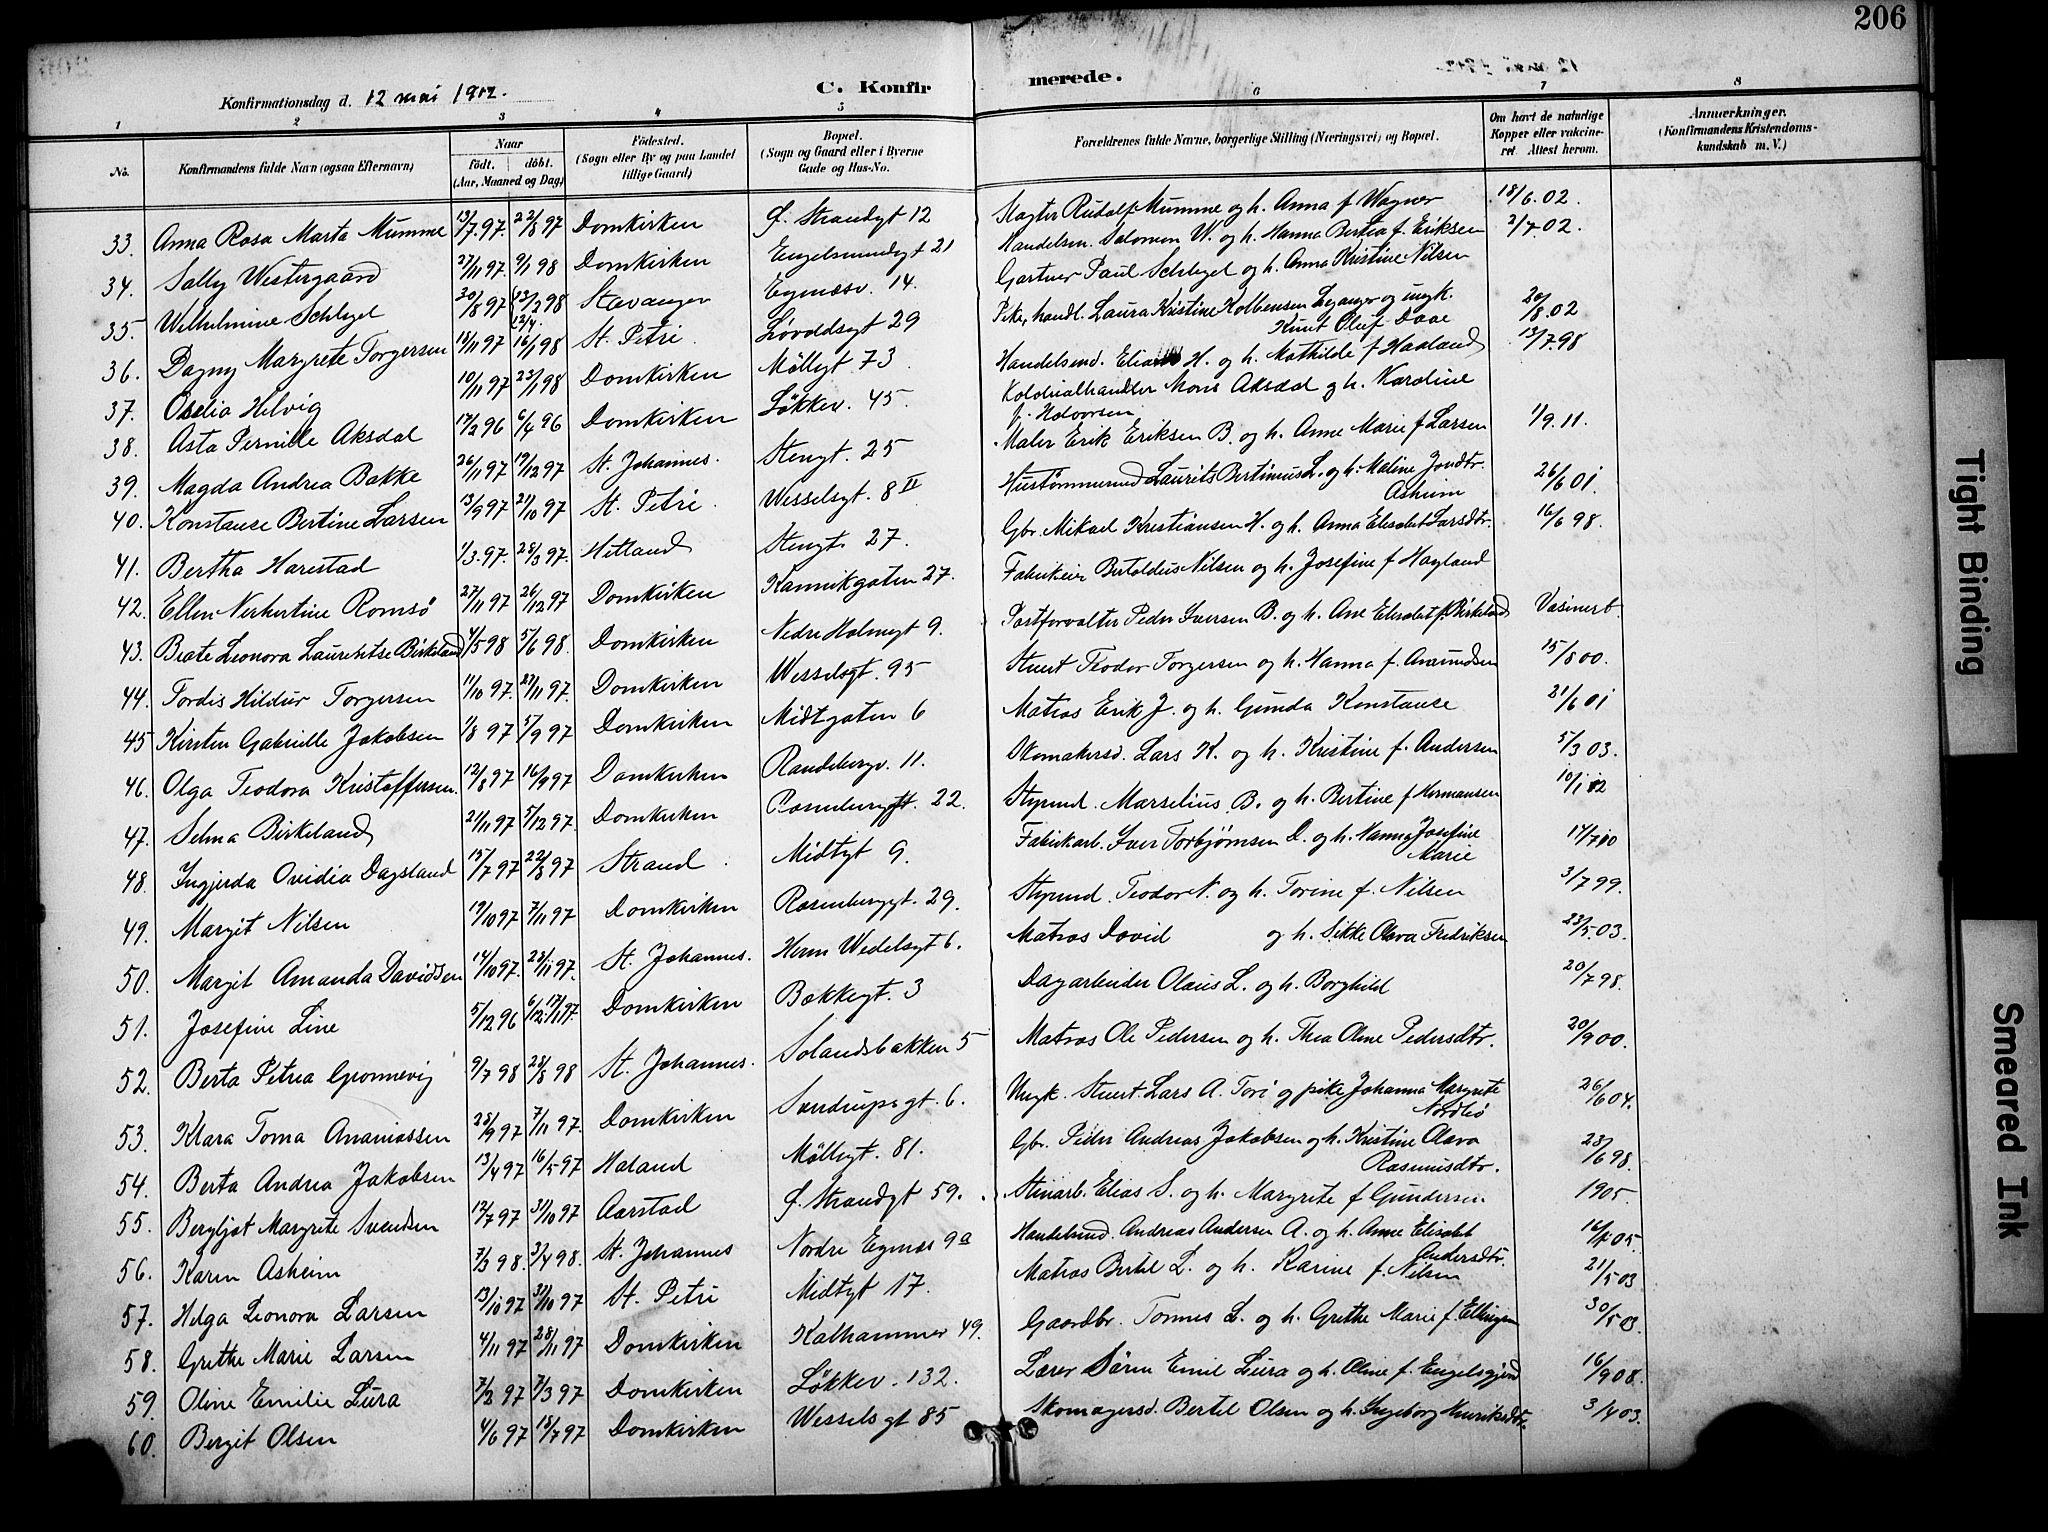 206
Konfirmationsdag d. 12 mai 1912.
C. Konfirmerede.
1 2 3 4 5 6 7 8
No. Konfirmandens fulde Navn (ogsaa Efternavn) Naar födt. döbt. (Aar, Maaned og Dag) Födested. (Sogn eller By og paa Landet tillige Gaard) Bopæl. (Sogn og Gaard eller i Byerne Gade og Hus-No. Forældrenes fulde Navne, borgerlige Stilling (Næringsvei) og Bopæl. Om havt de naturlige Kopper eller vakcineret. Attest herom. Anmærkninger. (Konfirmandens Kristendomskundskab m. V.)
33. Anna Rosa Marta Mumme 13/7 97. 22/8 97 Domkirken Ø. Strandgt 12 Slagter Rudolf Mumme og h. Anna f Wagner 18/6.02.
34. Sally Westergaard 27/11 97. 9/1 98 Domkirken Engelsmindegt 21 Handelsm. Salomon W. og h. Hanna Bertea f. Eriksen 2/7.02.
35. Wilhelmine Schlegel 30/8 97 13/2 98 Stavanger Egenæsv. 14. Gartner Paul Schlegel og h. Anna Kristine Nilsen
36. Dagny Margrete Torgersen 18/11 97 16/1 98 St. Petri. Løvdalsgt 29 Pike, handl. Laura Kristine Kolbensen Leganger og ungk. Knut Oluf Daae 20/8 02
37. Oselia Helvig 10/11 97 23/1 98 Domkirken Möllegt 73 Handelsmd. Elias H. og h. Mathilde f Haaland 13/7 98
38. Asta Pernille Aksdal 17/2 96 6/4 96 Domkirken Løkkev. 45. Kolonialhandler Mons Aksdal og h. Karoline f. Halvorsen
39. Magda Andrea Bakke 26/11 97 19/12 97 St. Johannes. Stengt. 25 Maler Erik Eriksen B. og h. Anne Marie f Larsen 1/9.11.
40. Konstanse Bertine Larsen 13/9 97 21/10 97 St. Petri. Wesselsgt. 8 II Hustömmermd Laurits Bertinius L. og h. Maline Jondtr. Asheim 26/6 01.
41. Bertha Harestad 1/3.97. 28/3 97. Hetland Stengt. 27. Gbr. Mikael Kristiansen H. og h. Anna Elisabet Larsdtr. 16/6 98.
42. Ellen Nerkertine Romsö 27/11 97 26/12 97 Domkirken Kannikgaten 27. Fabrikeier Bertoldus Nilsen og h. Josefine f Hagland
43. Beate Leonora Lauretse Birkeland 4/5 98 5/6 98. Domkirken Nedre Holmegt 9. Postforvalter Peder Iversen B. og h. Ane Elisabet f. Birkeland Vasinert
44. Tordis Hildur Torgersen 11/10 97. 21/11 97. Domkirken Wesselsgt. 95 Stuert Teodor Torgersen og h. Hanna f. Anundsen 15/8 00.
45 Kirsten Gabrielle Jakobsen 1/8 97 5/9 97 Domkirken Midtgaten 6 Matros Erik J. og h. Gunda Konstanse 21/6 01
46. Olga Teodora Kristoffersen. 12/8 97 16/9 97 Domkirken Randebergv. 11. Skomakersv. Lars K. og h. Kristine f. Andersen 5/3 03.
47. Selma Birkeland 21/11 97 5/12 97. Domkirken Rosenberggt. 22. Styrmd. Marselius B. og h. Bertine f Hermansen 10/1 12
48. Ingjerda Ovidia Dagsland 15/7 97 22/8 97 Strand Midtgt 9. Fabrikarb. Iver Torbjørnsen D. og h. Hanna Josefine Marie 14/7 10
49. Margit Nilsen 19/10 97 7/11 97 Domkirken Rosenberggt. 29. Styrmd. Teodor N. og h. Torine f. Nilsen 3/7 99.
50. Margit Amanda Davidsen 14/10 97. 28/11 97. St. Johannes. Herm Wedelsgt 6. Matros David og h. Sikke Olava Fredriksen 23/5.03.
51. Josefine Line 5/12 96 6/12. 17/1 97. Domkirken Bakkegt. 3 Dagarbeider Olaus L. og h. Borghild 20/7 98.
52. Berta Petrea Gronnevig 9/7 98 28/8 98 St. Johannes. Solandsbakken 5 Matros Ole Pedersen og h. Thea Oline Pedersdtr. 20/9 00.
53. Klara Toma Ananiassen 28/9 97 7/11 97. Domkirken Sandrupsgt. 6. Ungk. Stuert Lars A. Tori og pike Johanna Margrete Nordbö 26/6 04.
54. Berta Andrea Jakobsen 13/4 97 16/5 97 Haland Möllegt. 81. Gbr. Peder Andreas Jakobsen og h. Kristine Olava Rasmusdtr. 23/6 98.
55. Bergljot Margrete Svendsen 12/7 97 31/10 97 Aarstad Ø. Strandgt 59. Stinarb. Elias S. og h. Margrete f Gundersen 1905
56. Karen Asheim 7/3 98. 3/4 98. St. Johannes Nordre Egenæs 9a Handelsmd. Andreas Andersen A. og h. Anne Elisabet Andersdtr. 05.
57. Helga Leonora Larsen 13/10 97 31/10 97 St. Petri Midtgt 17. Matros Bertel L. og h. Karine f. Nilsen 21/5 03
58. Grethe Marie Larsen 4/11 97 28/11 97 Domkirken Kalhammer 49. Gaardbr. Tonnes L. og h. Grethe Marie f. Ellingsen 30/5 03.
59. Oline Emilie Lura 7/2 97 7/3 97 Domkirken Løkkev. 132. Lærer Sören Emil Lura og h. Oline f. Engelsgjerd 16/9 08.
60. Bergit Olsen 4/6 97 18/7 97 Domkirken Wesselsgt 85 Skomagersv. Bertel Olsen og h. Ingeborg Henriksdtr. 3/4 03.
Tight Binding
Smeared Ink